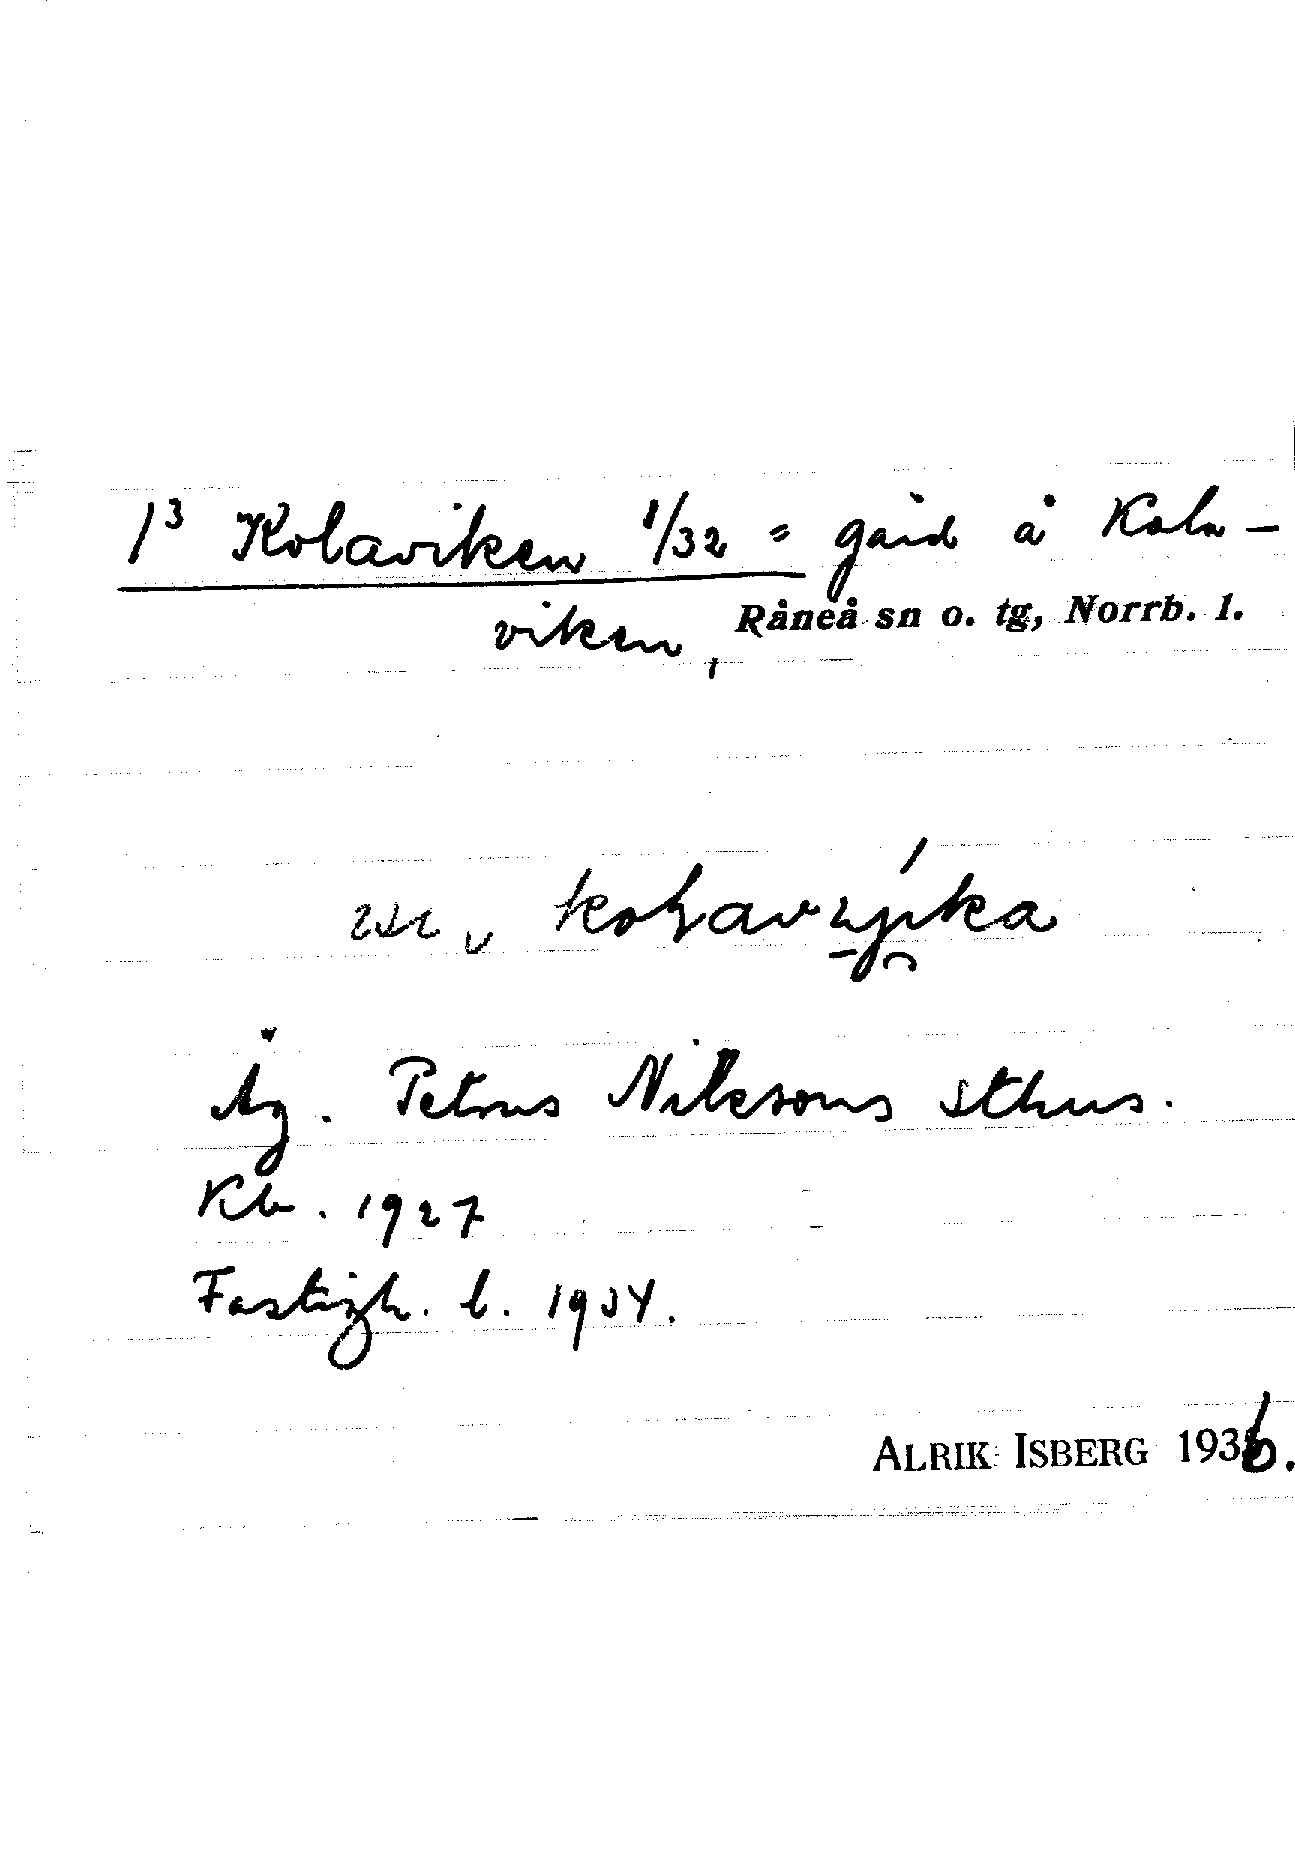 1³ Kolaviken 1/32 = gård å Kola-
viken, Råneå sn o. tg, Norrb. l.
Äg. Petrus Nilssons sthus.
Kb. 1927
Fastigh. b. 1934.
ALRIK ISBERG 1936.